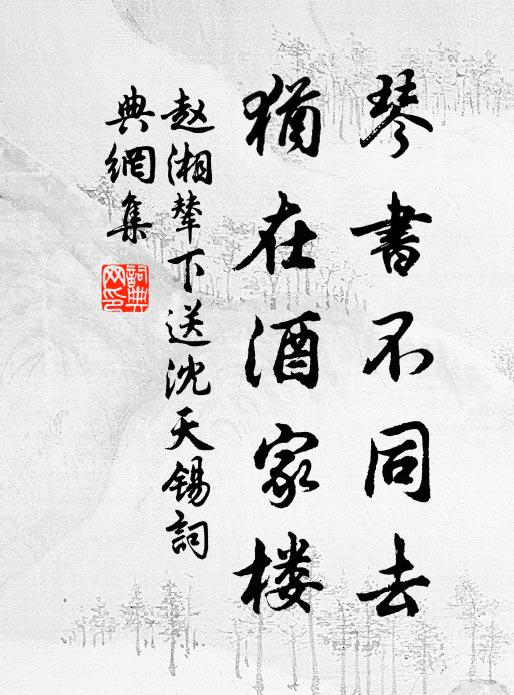 琴書不同去
猶在酒家楼
赵湘輦下送沈天锡詞
典網集
詞典
网印